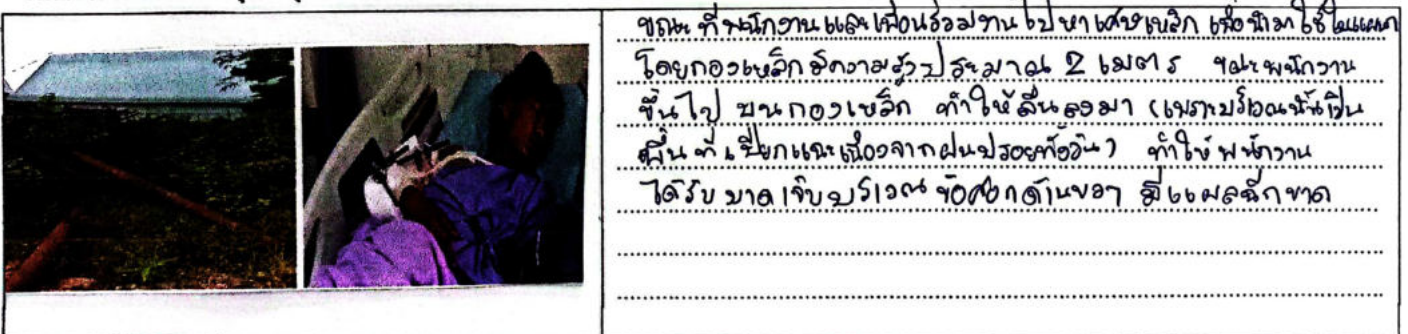 ขณะที่พนักงานและเพื่อนร่วมงานไปหาเศษเหล็ก เพื่อนำมาใช้ในแผนก
โดยกองเหล็กมีความสูงประมาณ 2 เมตร ขณะพนักงาน
ขึ้นไป บนกองเหล็ก ทำให้ลื่นลงมา (เพราะบริเวณนั้นเป็น
พื้นที่เปียกแฉะเนื่องจากฝนปรอยทั้งวัน) ทำให้พนักงาน
ได้รับบาดเจ็บบริเวณ ข้อศอกด้านขวา มีแผลฉีกขาด